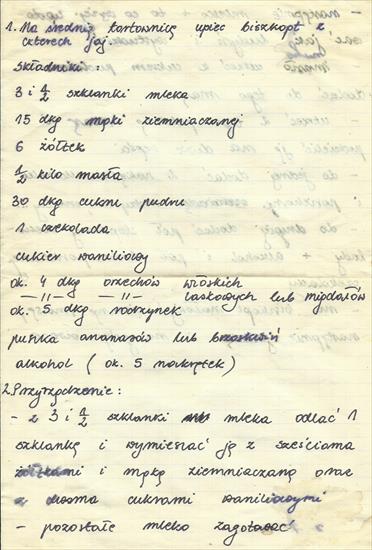 1. Na średnią tortownicę upiec biszkopt z
czterech jaj.
Składniki:
3 i 1/2 szklanki mleka
15 dkg mąki ziemniaczanej
6 żółtek
1/2 kilo masła
30 dkg cukru pudru
1 czekolada
cukier waniliowy
ok. 4 dkg orzechów włoskich
—||— —||— laskowych lub migdałów
ok. 5 dkg rodzynek
puszka ananasów lub brzoskwiń
alkohol ( ok. 5 nakrętek )
2. Przyrządzenie :
- z 3 i 1/2 szklanki mleka odlać 1
szklankę i wymieszać ją z sześcioma
żółtkami i mąką ziemniaczaną oraz
z dwoma cukrami waniliowymi
- pozostałe mleko zagotować